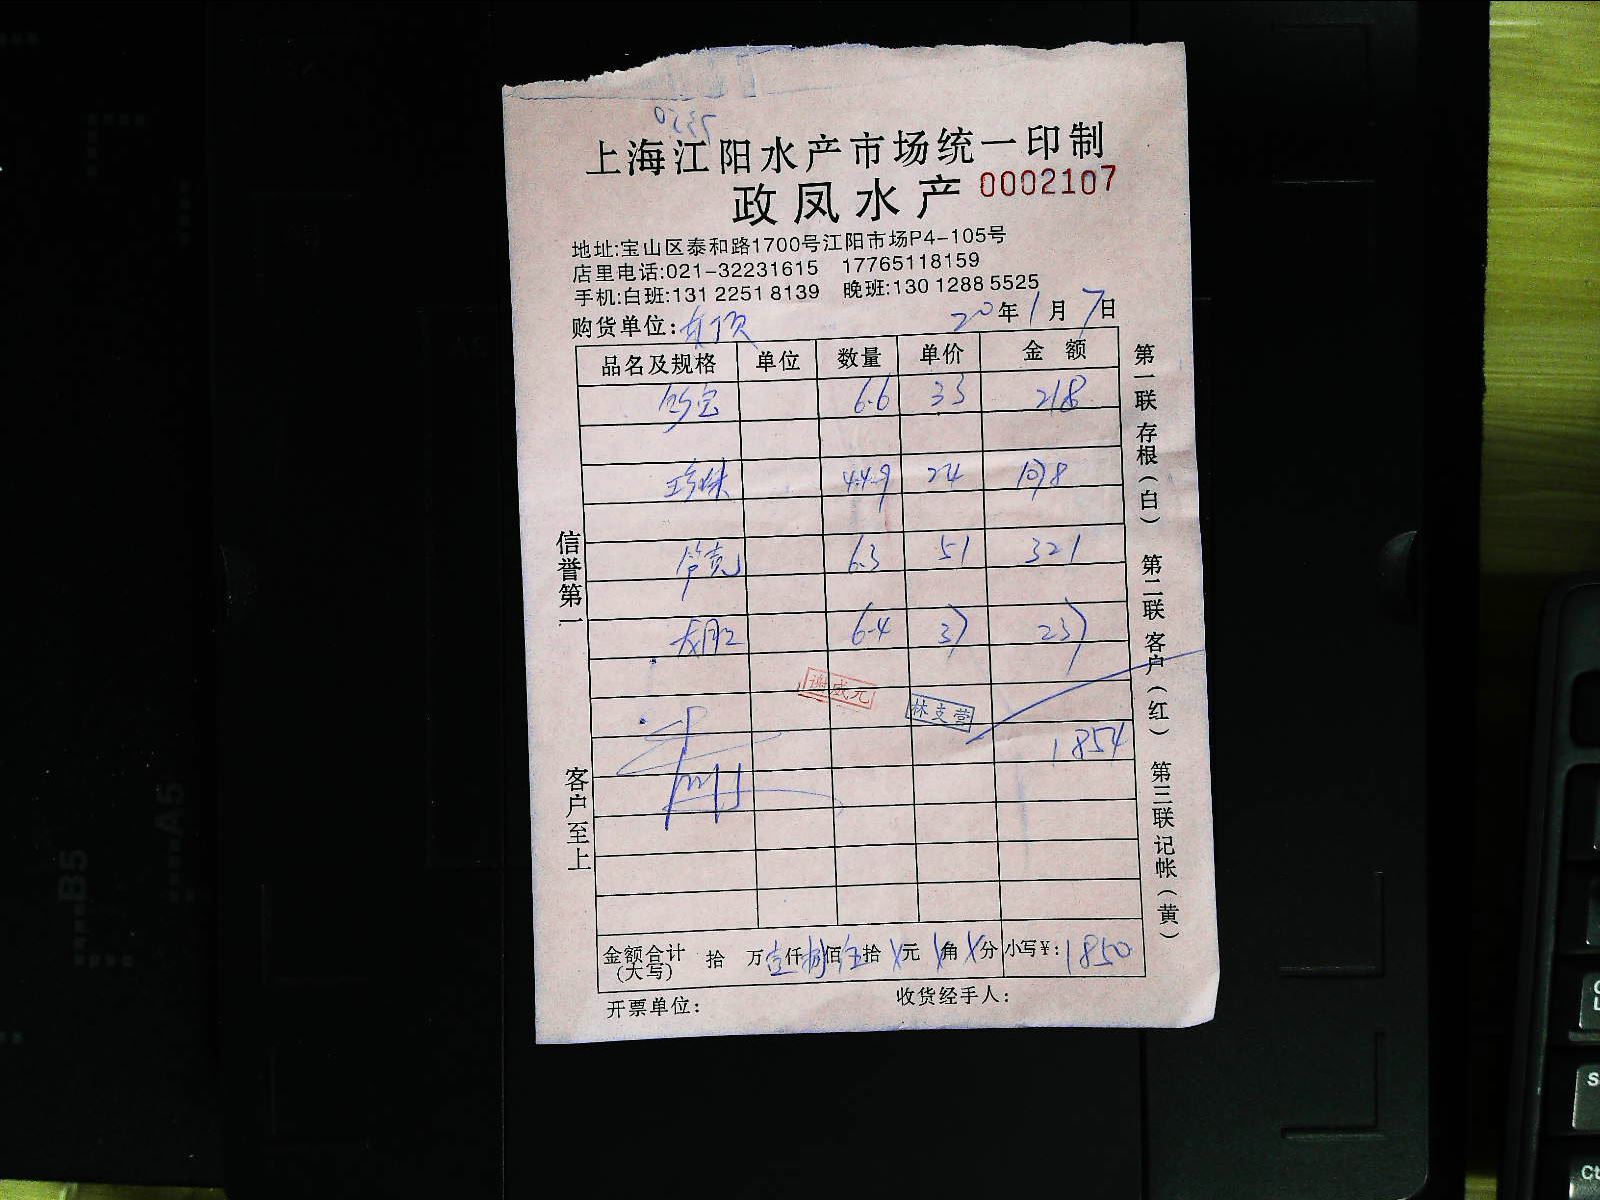 上海江阳水产市场统一印制
政凤水产 0002107
地址:宝山区泰和路1700号江阳市场P4-105号
店里电话:021-32231615 17765118159
手机:白班:131 2251 8139 晚班:130 1288 5525
购货单位: 20年1月7日
品名及规格 单位 数量 单价 金额
6.6 33 218
珍味 44.9 24 1078
6.3 51 321
6.4 37 237
谢成元
林支营
1854
金额合计(大写) 拾 万壹仟捌佰伍拾 元 角 分 小写¥:1850
开票单位: 收货经手人:
信誉第一
客户至上
第一联 存根(白)
第二联 客户(红)
第三联 记帐(黄)
B5
A5